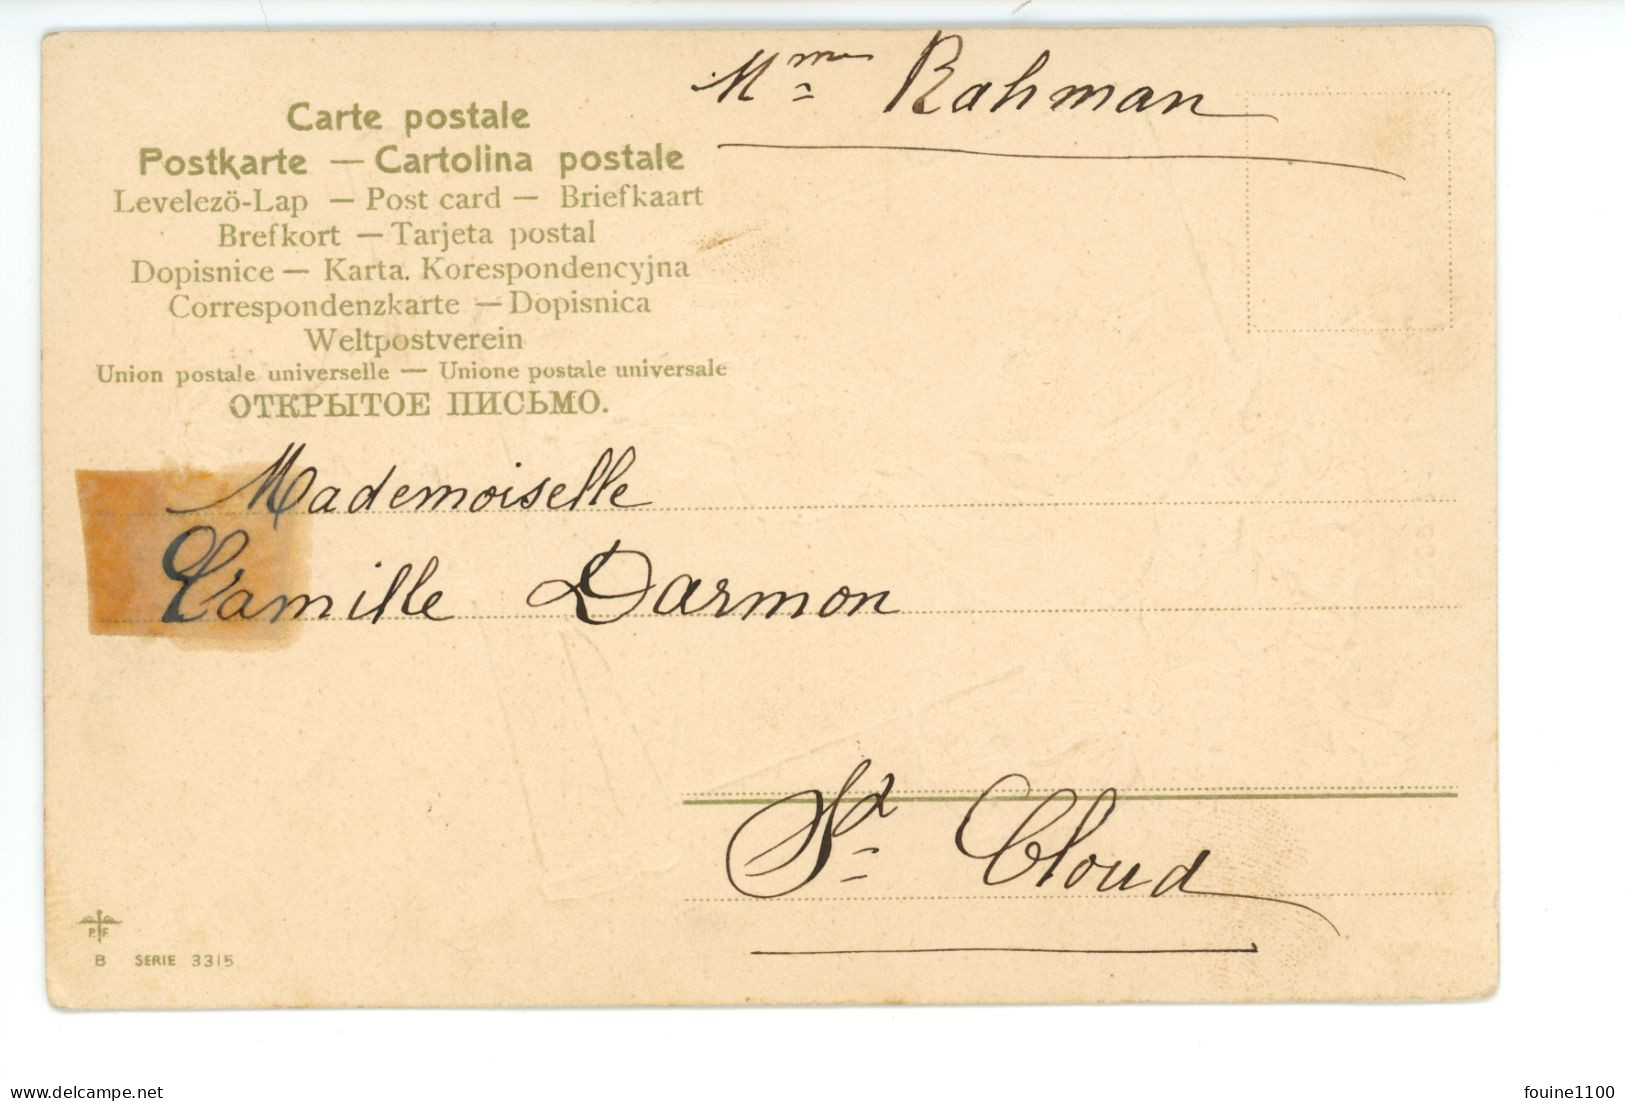 Mme Rahman
Carte postale
Postkarte — Cartolina postale
Levelezö-Lap — Post card — Briefkaart
Brefkort — Tarjeta postal
Dopisnice — Karta. Korespondencyjna
Correspondenzkarte — Dopisnica
Weltpostverein
Union postale universelle — Unione postale universale
ОТКРЫТОЕ ПИСЬМО.
Mademoiselle
Camille Darmon
St Cloud
P. F.
B SERIE 3315
delcampe.net
fouine1100